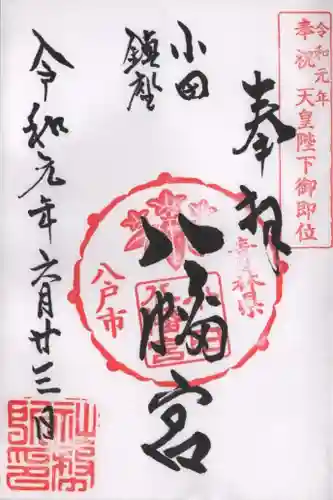 令和元年
奉祝 天皇陛下御即位
奉拝
小田
鎮座
八幡宮
青森県
八戸市
令和元年六月廿三日
社務
所印